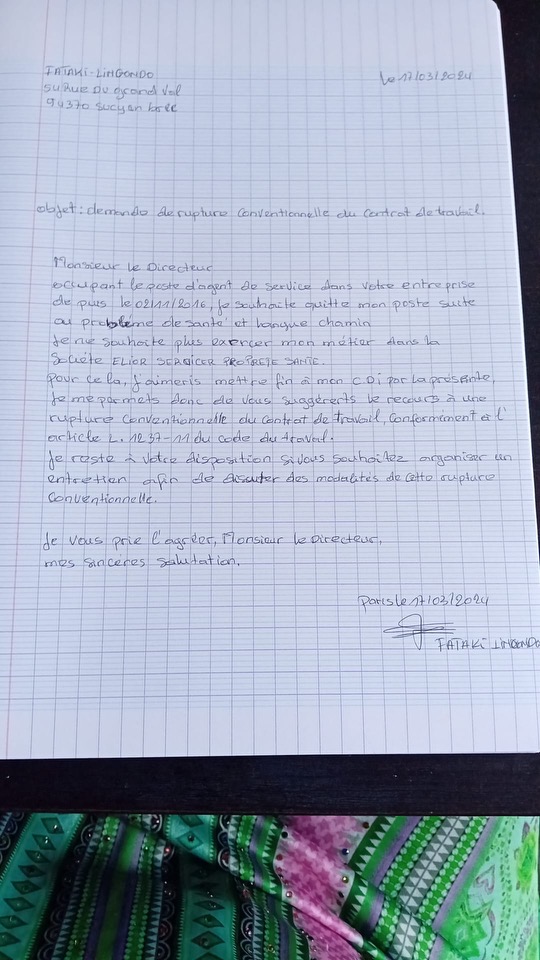 FATAKI-LINGONDO
Le 17/03/2024
5u Rue Du grand Val
94370 sucy en brie
objet: demande de rupture conventionnelle du contrat de travail.
Monsieur Le Directeur
occupant le poste d'agent de service dans votre entreprise
de puis le 02/11/2016, je souhaite quitte mon poste suite
au problème de santé et longue chamin
Je ne souhaite plus exercer mon métier dans la
Société ELIOR SERVICER PROPRETE SANTE.
pour ce la, j'aimeris mettre fin à mon C.D.i par la présente,
Je me permets donc de vous suggérerts le recours à une
rupture conventionnelle du contrat de travail, conformément à l'
article L. 1237-11 du code du travail.
Je reste à votre disposition si vous souhaitez organiser un
entretien afin de discuter des modalités de cette rupture
conventionnelle.
Je vous prie l'agréer, Monsieur le Directeur,
mes sincères salutation.
Paris le 17/03/2024
FATAKi LINGONDO